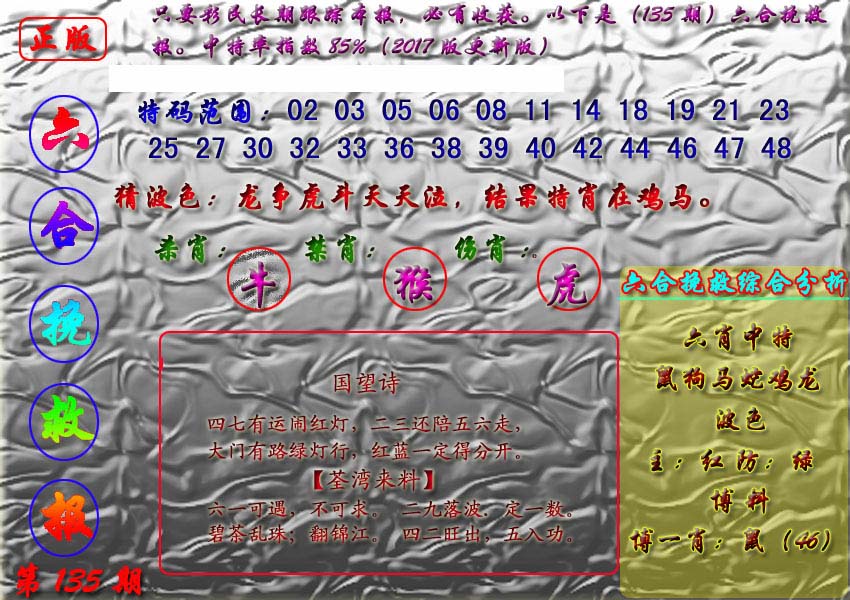 正版
只要彩民长期跟踪本报，必有收获。以下是（135期）六合挽救
报。中特率指数85%（2017版更新版）
特码范围：02 03 05 06 08 11 14 18 19 21 23
25 27 30 32 33 36 38 39 40 42 44 46 47 48
猜波色：龙争虎斗天天泣，结果特肖在鸡马。
杀肖：牛 禁肖：猴 伤肖：。虎
六合挽救报
第135期
国望诗
四七有运闹红灯，二三还陪五六走，
大门有路绿灯行，红蓝一定得分开。
【荃湾来料】
六一可遇，不可求。 二九落波．定一数。
碧茶乱珠；翻锦江。 四二旺出，五入功。
六合挽救综合分析
六肖中特
鼠狗马蛇鸡龙
波色
主：红防：绿
博料
博一肖：鼠（46）